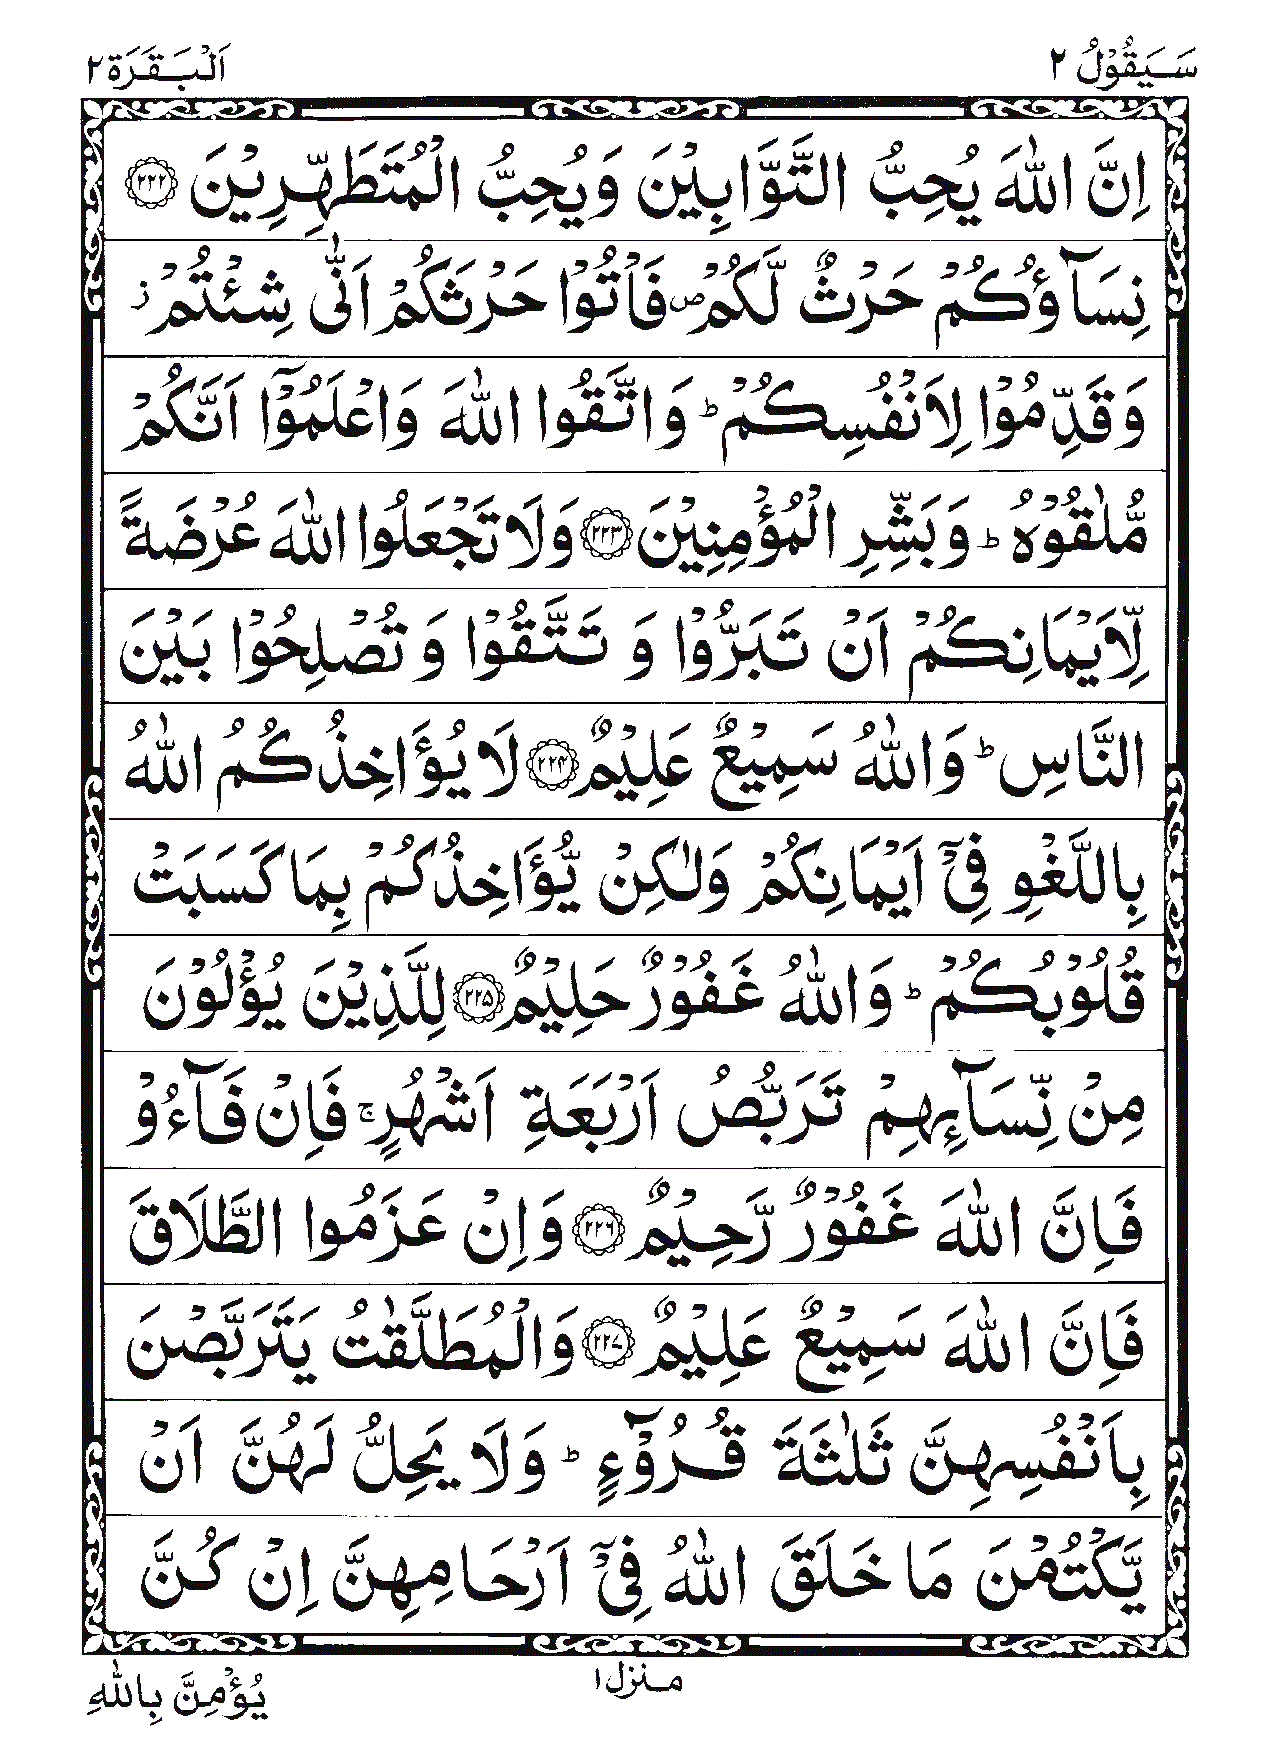 سَيَقُوْلُ ٢ اَلْبَقَرَة ٢
اِنَّ اللّٰهَ يُحِبُّ التَّوَّابِيْنَ وَيُحِبُّ الْمُتَطَهِّرِيْنَ ﴿۲۲۲﴾
نِسَآؤُكُمْ حَرْثٌ لَّكُمْ ۖ فَاْتُوْا حَرْثَكُمْ اَنّٰى شِئْتُمْ ز
وَقَدِّمُوْا لِاَنْفُسِكُمْ ؕ وَاتَّقُوا اللّٰهَ وَاعْلَمُوْٓا اَنَّكُمْ
مُّلٰقُوْهُ ؕ وَبَشِّرِ الْمُؤْمِنِيْنَ ﴿۲۲۳﴾ وَلَا تَجْعَلُوا اللّٰهَ عُرْضَةً
لِّاَيْمَانِكُمْ اَنْ تَبَرُّوْا وَ تَتَّقُوْا وَ تُصْلِحُوْا بَيْنَ
النَّاسِ ؕ وَاللّٰهُ سَمِيْعٌ عَلِيْمٌ ﴿۲۲۴﴾ لَا يُؤَاخِذُكُمُ اللّٰهُ
بِاللَّغْوِ فِىْٓ اَيْمَانِكُمْ وَلٰكِنْ يُّؤَاخِذُكُمْ بِمَا كَسَبَتْ
قُلُوْبُكُمْ ؕ وَاللّٰهُ غَفُوْرٌ حَلِيْمٌ ﴿۲۲۵﴾ لِلَّذِيْنَ يُؤْلُوْنَ
مِنْ نِّسَآءِهِمْ تَرَبُّصُ اَرْبَعَةِ اَشْهُرٍ ۚ فَاِنْ فَآءُوْ
فَاِنَّ اللّٰهَ غَفُوْرٌ رَّحِيْمٌ ﴿۲۲۶﴾ وَاِنْ عَزَمُوا الطَّلَاقَ
فَاِنَّ اللّٰهَ سَمِيْعٌ عَلِيْمٌ ﴿۲۲۷﴾ وَالْمُطَلَّقٰتُ يَتَرَبَّصْنَ
بِاَنْفُسِهِنَّ ثَلٰثَةَ قُرُوْٓءٍ ؕ وَلَا يَحِلُّ لَهُنَّ اَنْ
يَّكْتُمْنَ مَا خَلَقَ اللّٰهُ فِىْٓ اَرْحَامِهِنَّ اِنْ كُنَّ
منزل ١
يُؤْمِنَّ بِاللّٰهِ